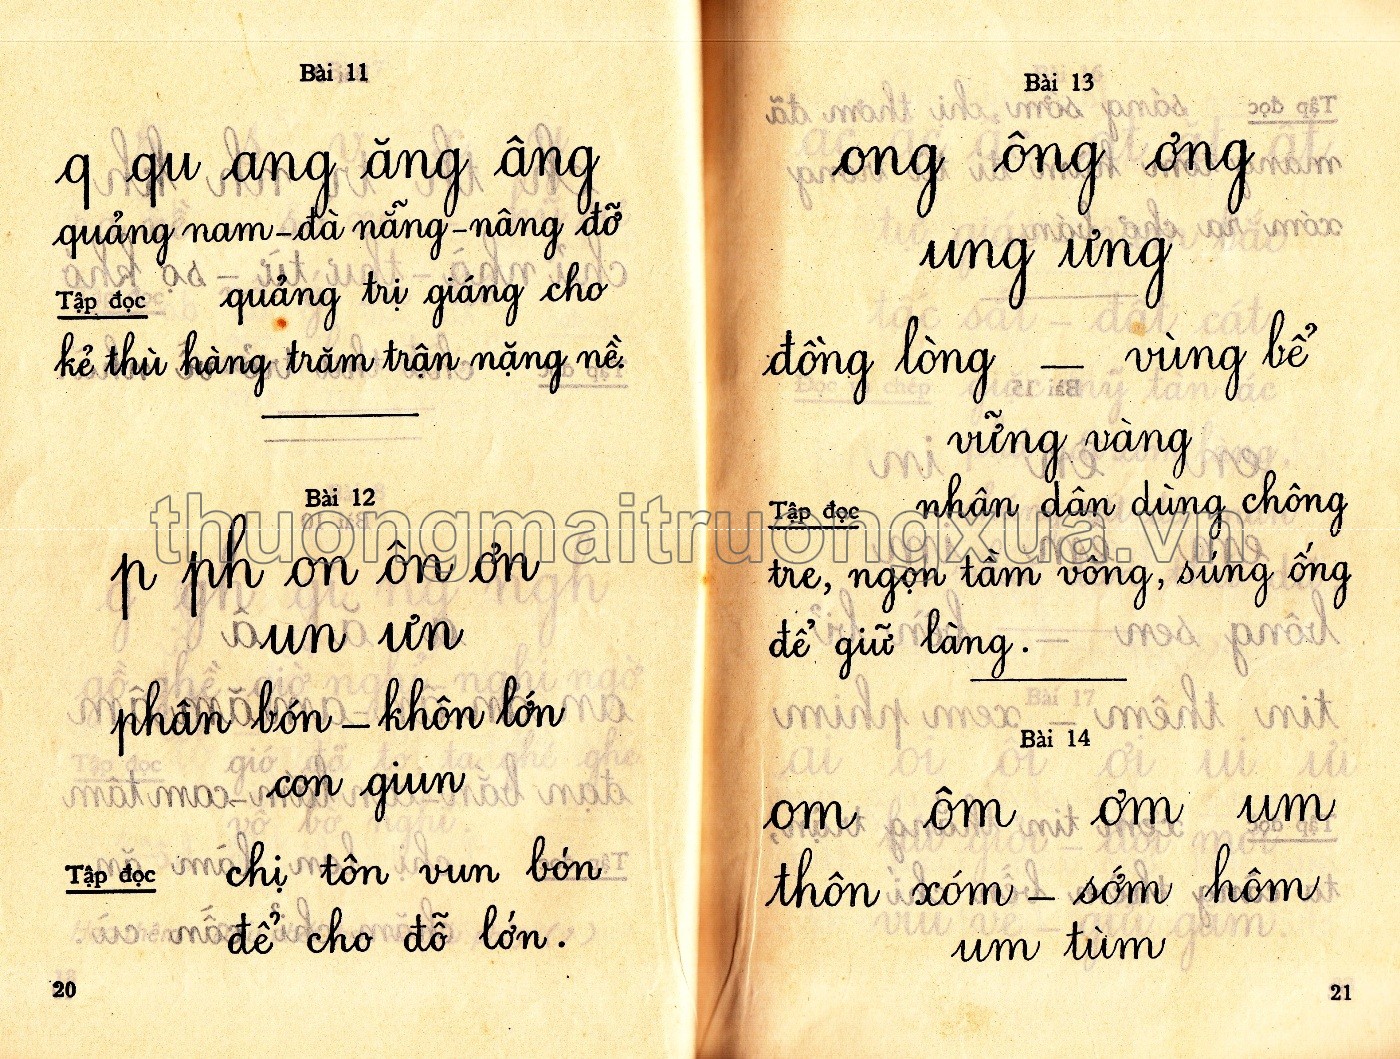 Bài 11
q qu ang ăng âng
quảng nam – đà nẵng – nâng đỡ
Tập đọc quảng trị giáng cho
kẻ thù hàng trăm trận nặng nề.
Bài 12
p ph on ôn ơn
un ưn
phân bón – khôn lớn
con giun
Tập đọc chị tôn vun bón
để cho đỗ lớn.
20
Bài 13
ong ông ơng
ung ưng
đồng lòng — vùng bể
vững vàng
Tập đọc nhân dân dùng chông
tre, ngọn tầm vông, súng ống
để giữ làng.
Bài 14
om ôm ơm um
thôn xóm – sớm hôm
um tùm
21
thuongmaitruongxua.vn